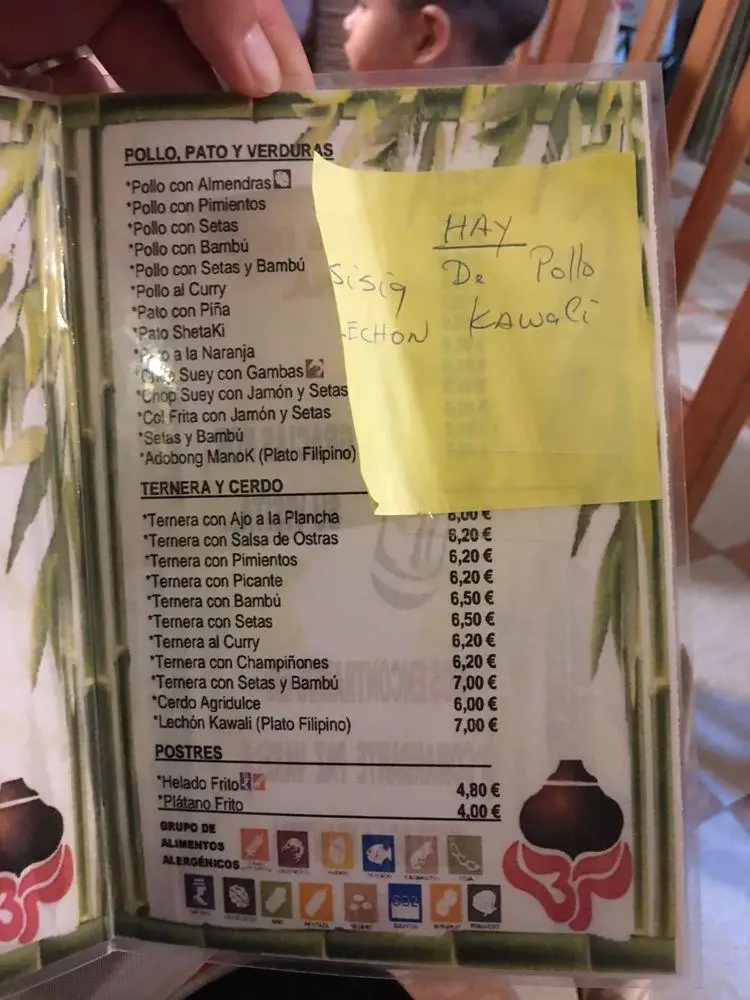 POLLO, PATO Y VERDURAS
*Pollo con Almendras
*Pollo con Pimientos
*Pollo con Setas
*Pollo con Bambú
*Pollo con Setas y Bambú
*Pollo al Curry
*Pato con Piña
*Pato ShetaKi
a la Naranja
Suey con Gambas
*Chop Suey con Jamón y Setas
*Col Frita con Jamón y Setas
*Setas y Bambú
*Adobong ManoK (Plato Filipino)
HAY
Sisig De Pollo
LECHON KAWALi
TERNERA Y CERDO
*Ternera con Ajo a la Plancha 6,00 €
*Ternera con Salsa de Ostras 6,20 €
*Ternera con Pimientos 6,20 €
*Ternera con Picante 6,20 €
*Ternera con Bambú 6,50 €
*Ternera con Setas 6,50 €
*Ternera al Curry 6,20 €
*Ternera con Champiñones 6,20 €
*Ternera con Setas y Bambú 7,00 €
*Cerdo Agridulce 6,00 €
*Lechón Kawali (Plato Filipino) 7,00 €
POSTRES
*Helado Frito 4,80 €
*Plátano Frito 4,00 €
GRUPO DE
ALIMENTOS
ALERGÉNICOS